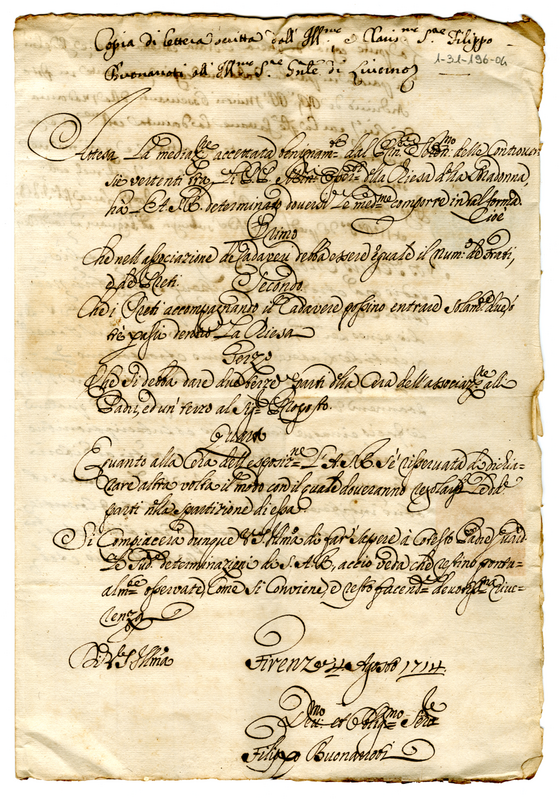 Copia di lettera scritta dall' Ill.mo e Clariss.mo S.re Filippo
Buonaroti all' Ill.mo S.re Gnle di Livorno
1-31-196-04
Attesa La mediaz.ne accettata benignam.te dal della Controver-
sie vertenti tra della Chiesa d'lla Madonna,
ha L'A.S.R. determinato doversi Le med.me comporre in tal forma
Cioè
Primo
Che nell'associazione de Cadaveri debba essere Eguale il Num.o de Frati,
e de Preti.
Secondo
Che i Preti accompagnando il Cadavere possino entrare Solam.te due, ò
trè passi dentro La Chiesa
Terzo
Che Si debba dare due terze parti d'lla Cera dell'associaz.ne alli
Padri, ed un' terzo al Sig.re Proposto.
Quarto
E quanto alla Cera dell'esposiz.ne L'A.S.R. Si è risservata di dichia-
rare altra volta il modo con il quale doveranno regolarsi Le d.e
parti n'lla spartizione di essa
Si Compiacerà dunque V.S. Ill.ma di far' sapere à Cotesto Padre Guard.
Le Sud.e determinazioni di S.A.R., acciò veda che restino pontu-
alm.te osservate Come Si Conviene, e resto facend.e devotiss.ma river-
renza
Di V.S. Ill.ma
Firenze 4 Agosto 1714
Dev.mo et Oblig.mo Ser.re
Filippo Buonaroti